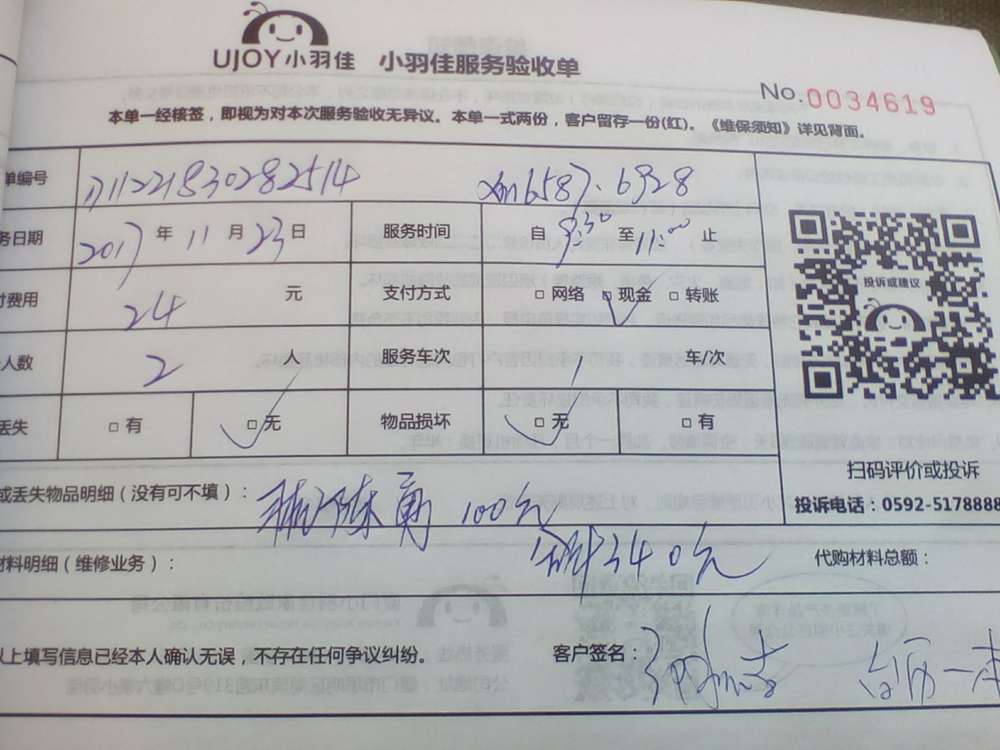 UJOY小羽佳 小羽佳服务验收单
No.0034619
本单一经核签，即视为对本次服务验收无异议。本单一式两份，客户留存一份(红)。《维保须知》详见背面。
单编号
务日期 2017年11月23日 服务时间 自9:30至11:00止
费用 24 元 支付方式 □网络 □现金 □转账
人数 2 人 服务车次 1 车/次
丢失 □有 □无 物品损坏 □无 □有
投诉或建议
扫码评价或投诉
投诉电话：0592-5178888
或丢失物品明细（没有可不填）： 100元
340元
材料明细（维修业务）： 代购材料总额：
以上填写信息已经本人确认无误，不存在任何争议纠纷。 客户签名：